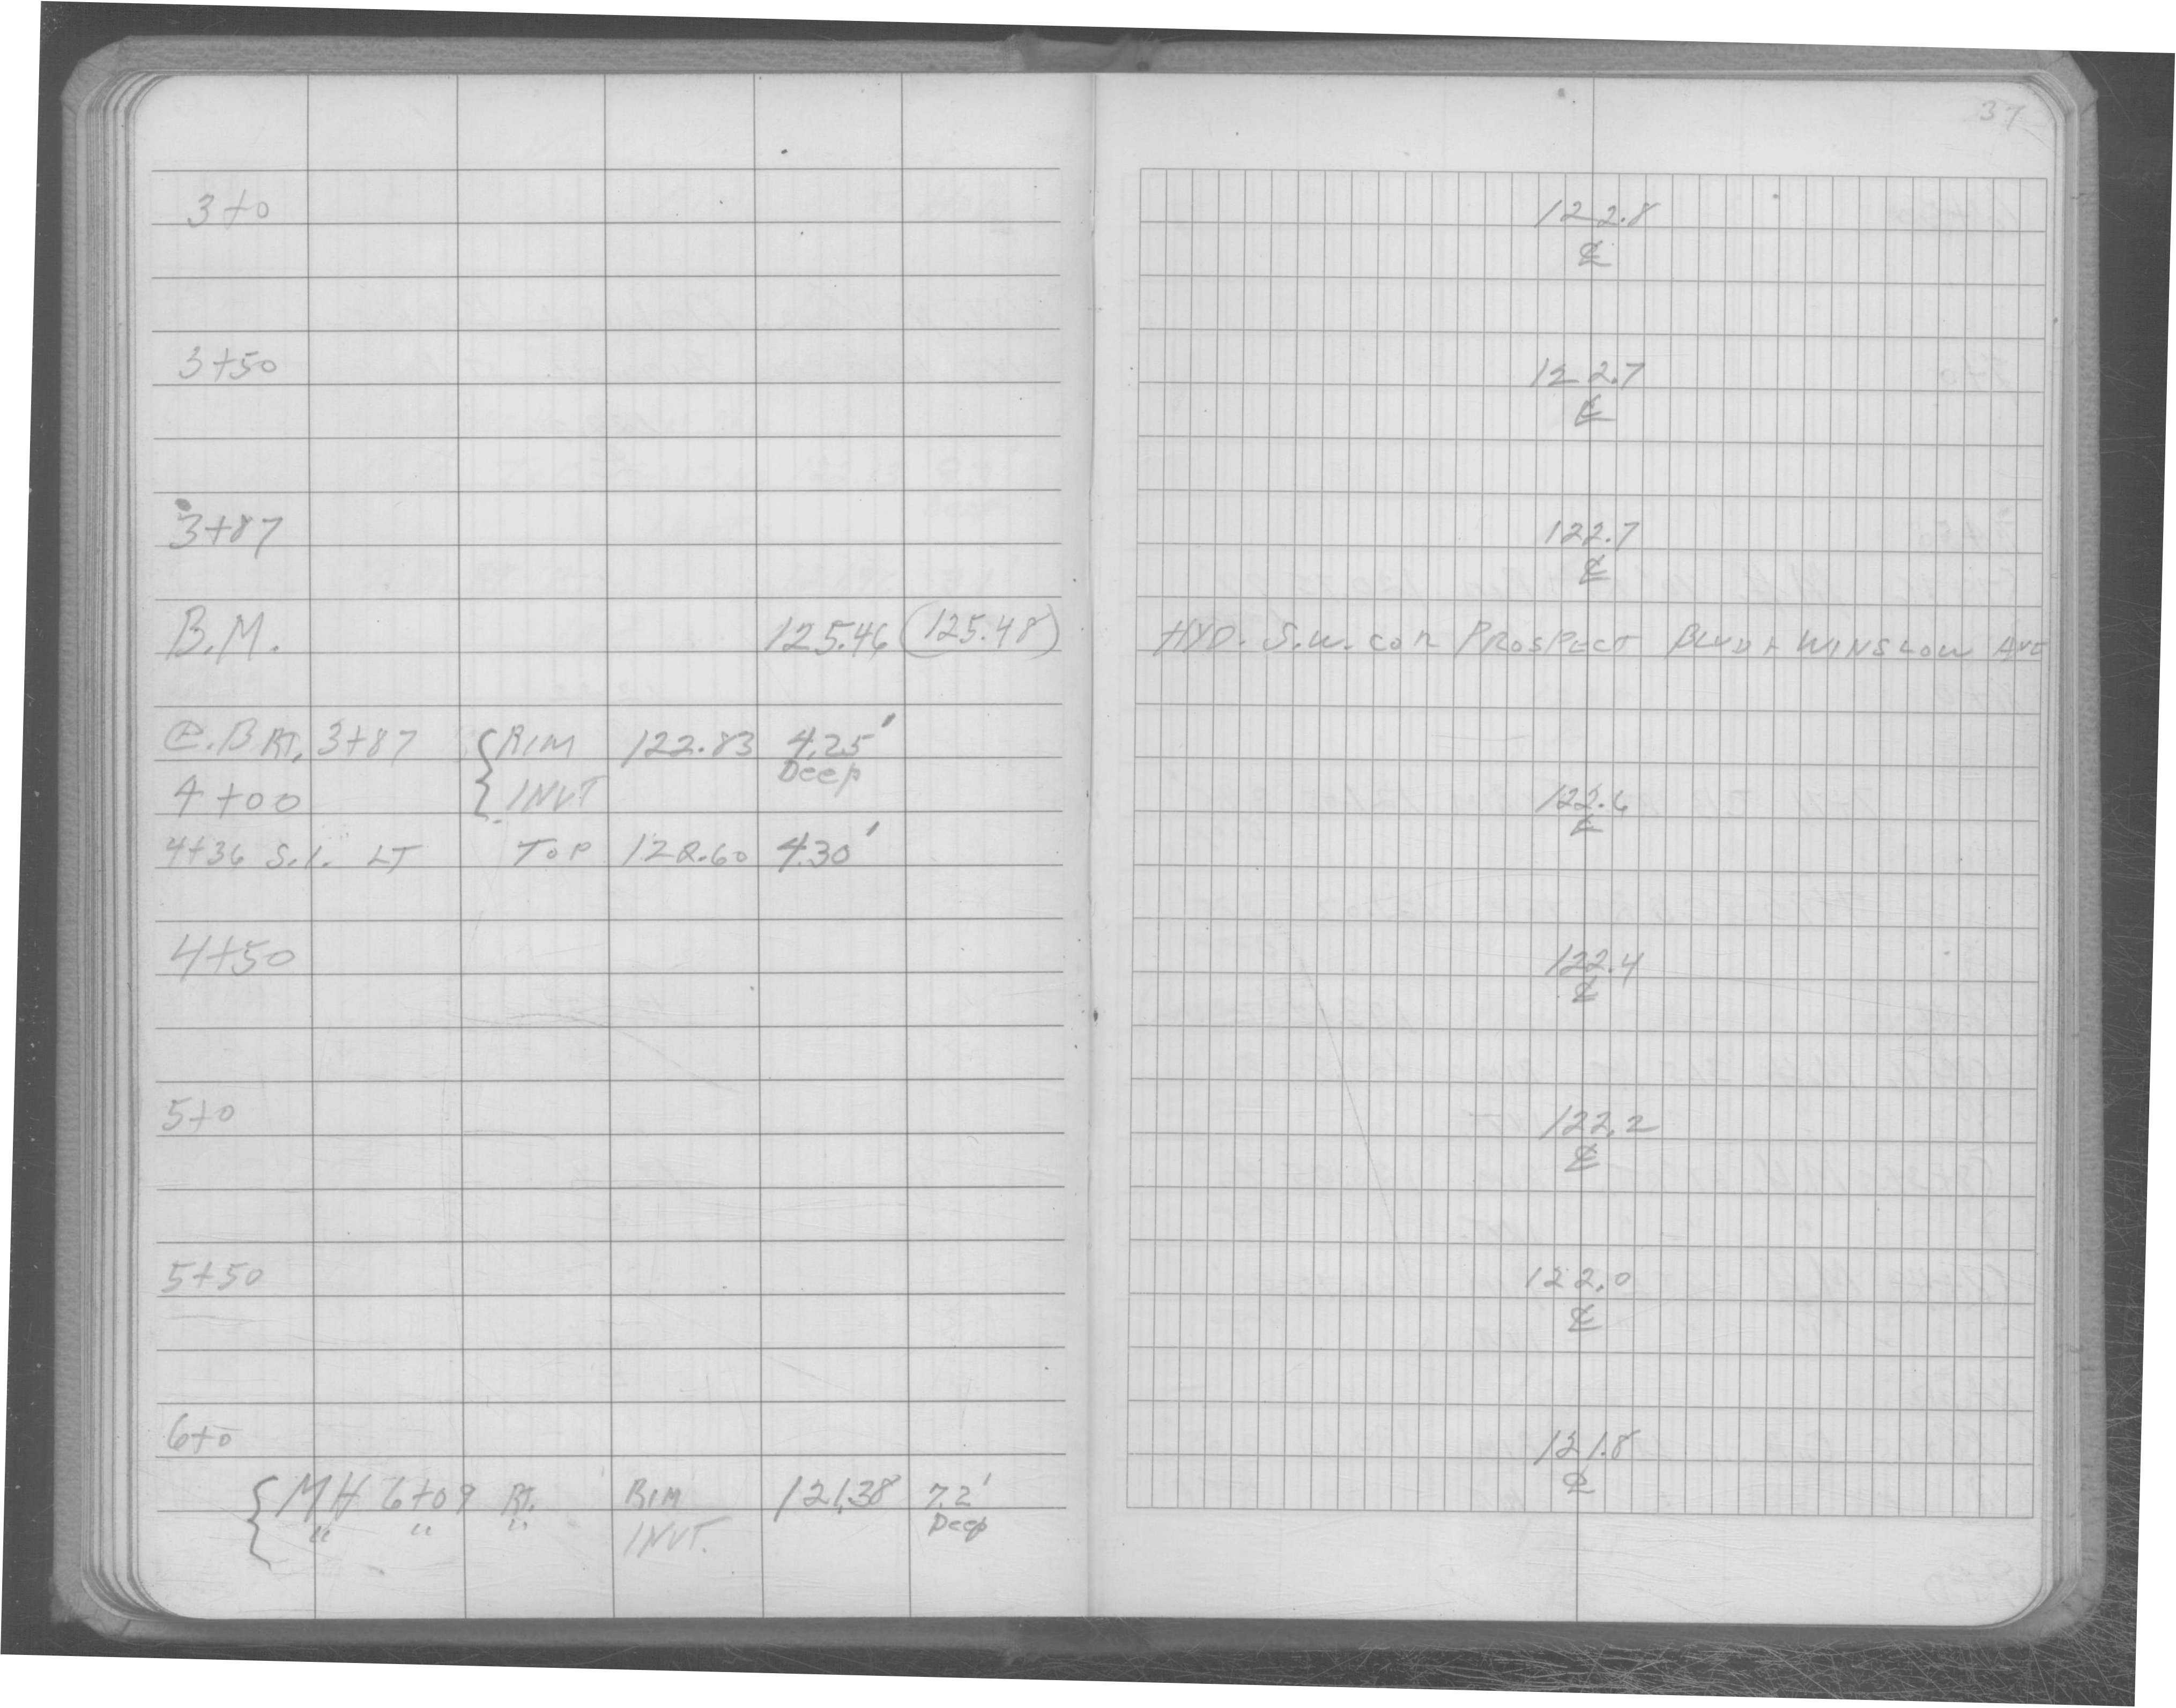 37
3+0 122.8
℄
3+50 122.7
℄
3+87 122.7
℄
B.M. 125.46 (125.48) HYD. S.W. COR PROSPECT BLVD + WINSLOW AVE
C.B RT. 3+87 { RIM 122.83 4.25'
Deep
4+00 INVT 122.6
℄
4+36 S.I. LT TOP 122.60 4.30'
4+50 122.4
℄
5+0 122.2
℄
5+50 122.0
℄
6+0 121.8
℄
{ MH 6+09 RT. RIM 121.38 7.2'
" " " INVT. Deep